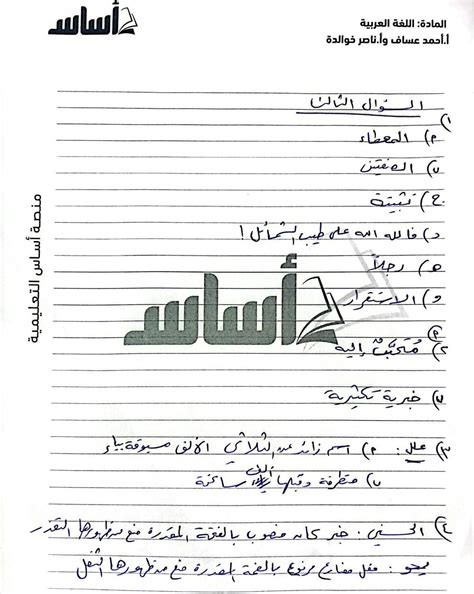 أساس
المادة: اللغة العربية
أ.أحمد عساف وأ.ناصر خوالدة
السؤال الثالث
١)
٢) المعطاء
ب) الصفتين
ج) تثبيتة
د) فالله الله على طيب الشمائل!
هـ) رجلاً
و) الاستقرار
أساس
منصة أساس التعليمية
٢) مُتحبّبٌ إليه
ب) خبرية تكثيرية
٣) علل: ٢) اسم زائد عن الثلاثي الألف مسبوقة بياء
ب) متطرفة وقبلها ألف ساكنة
٤) الحسنى: خبر كان منصوب بالفتحة المقدرة منع من ظهورها التعذر
يحبو: فعل مضارع مرفوع بالضمة المقدرة منع من ظهورها الثقل